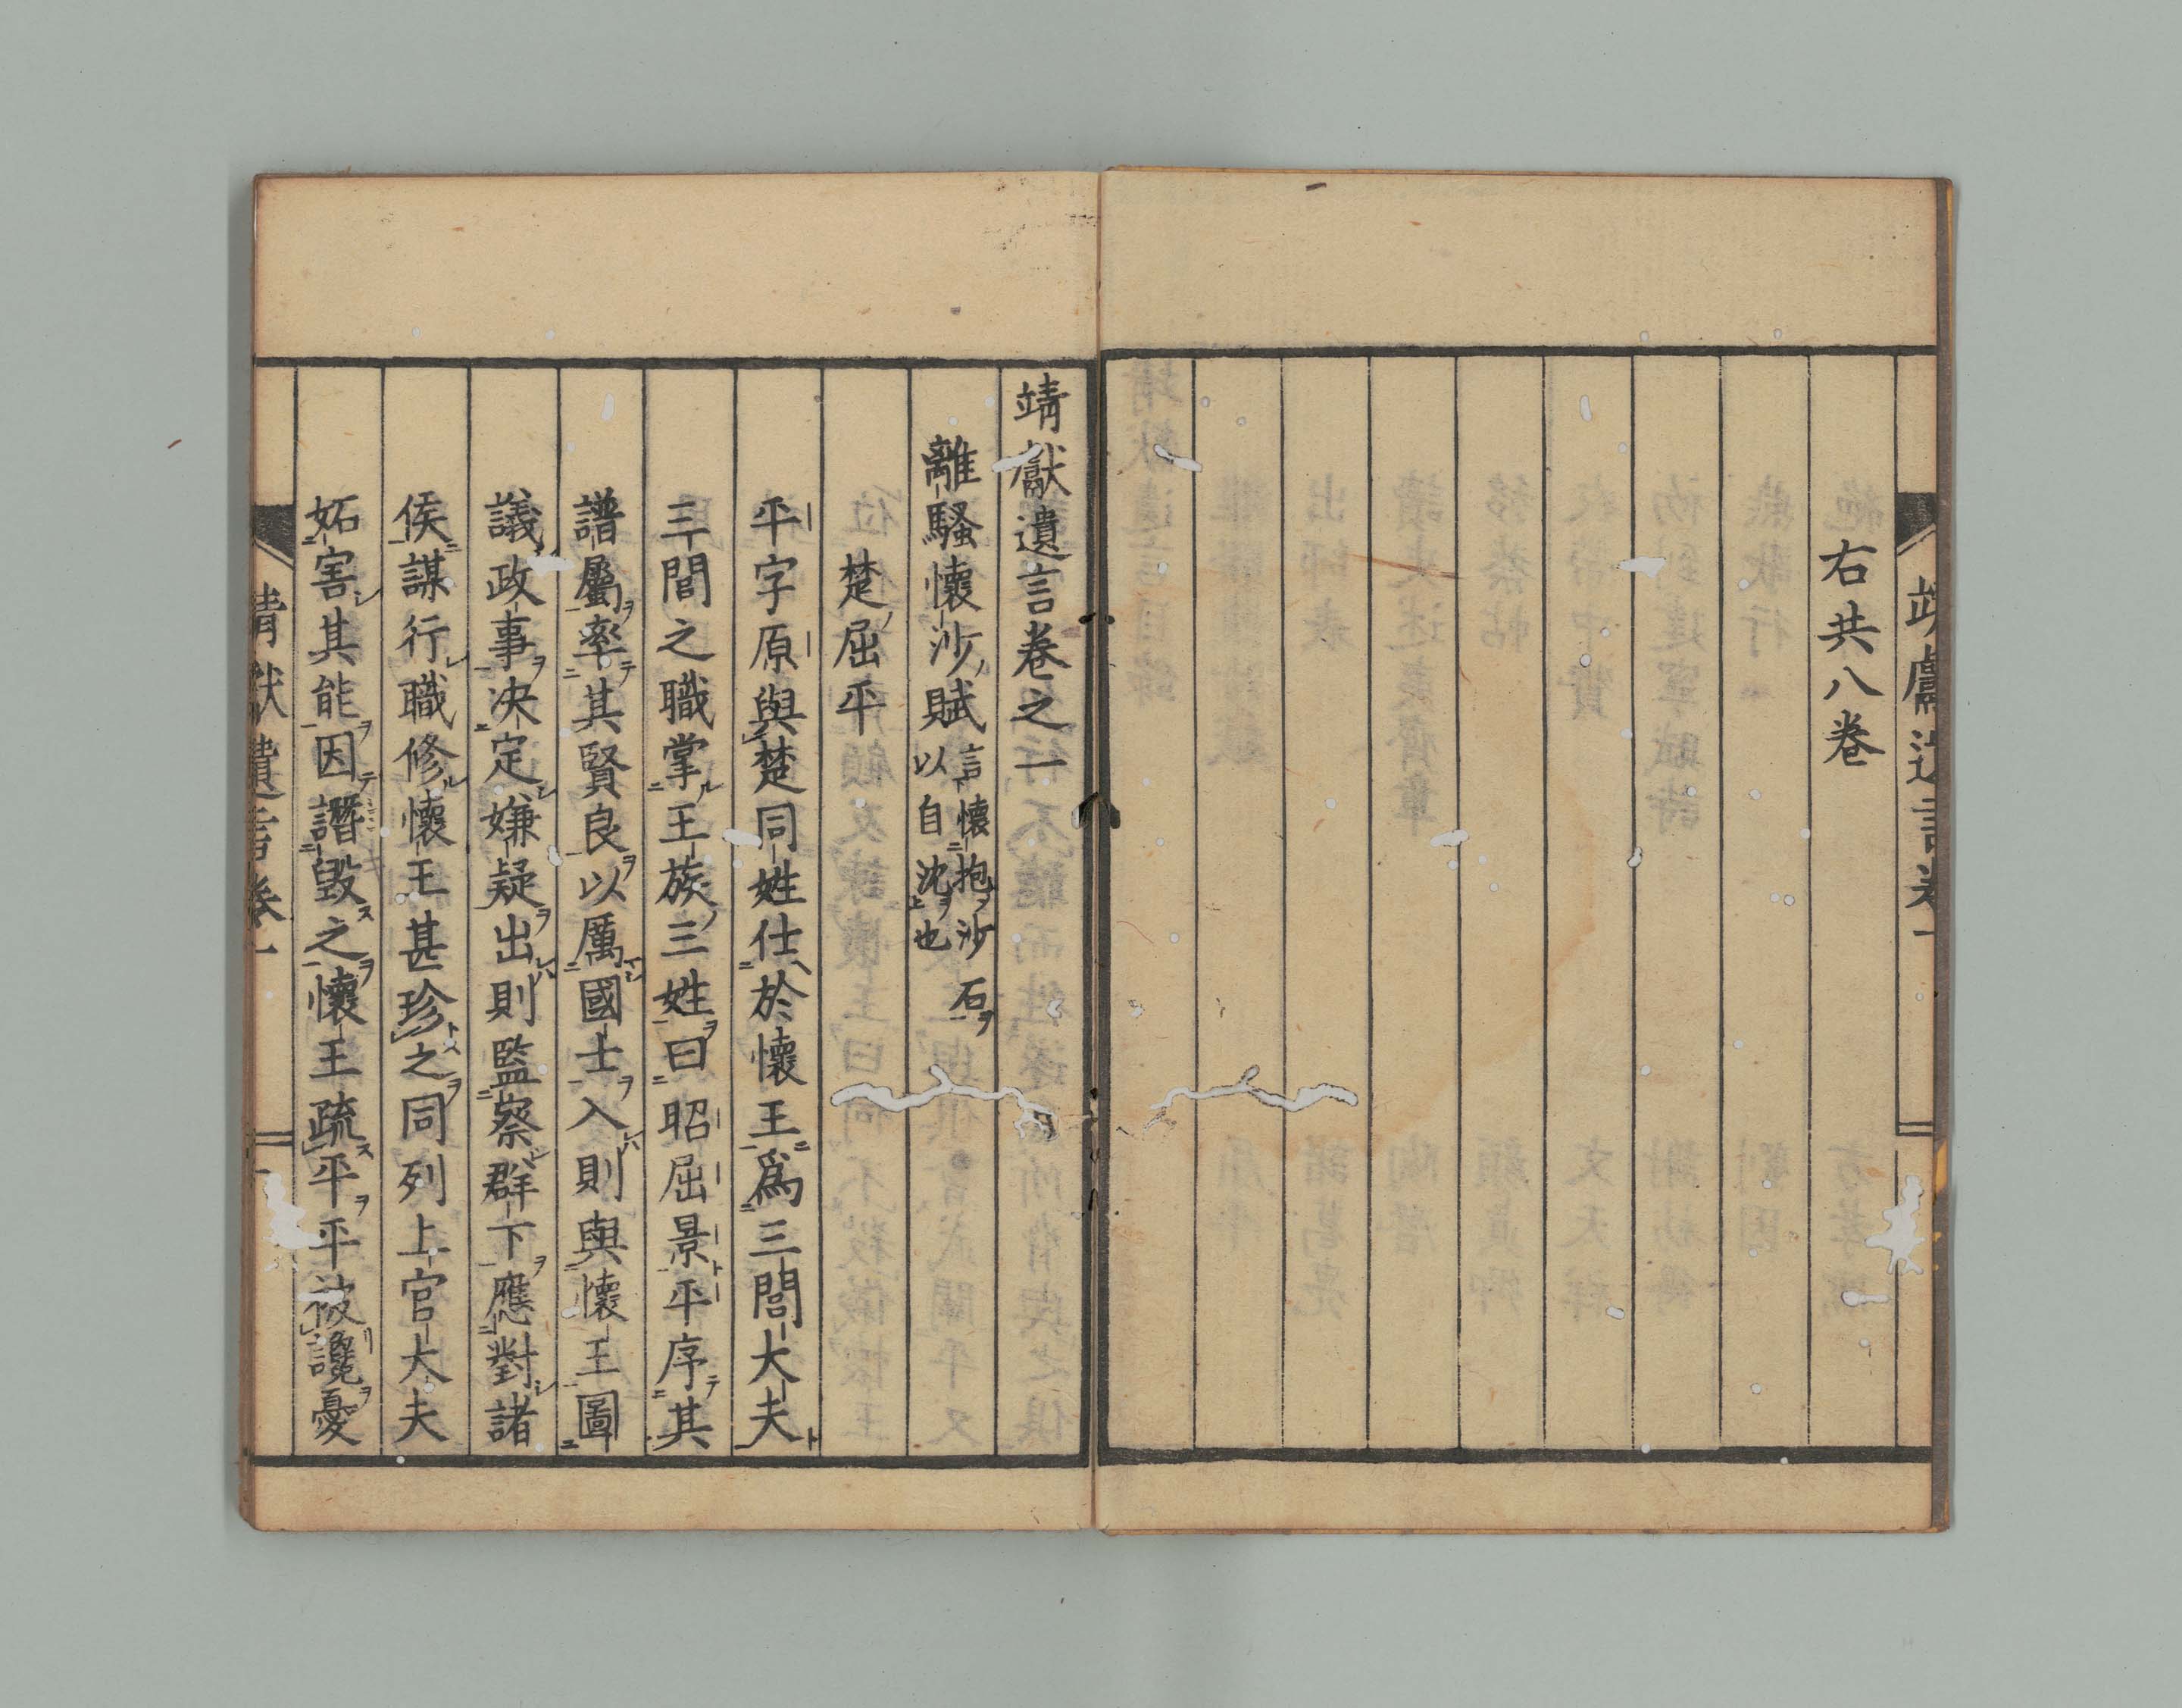 靖獻遺言卷一
右共八卷
靖獻遺言卷之一
離騷懷沙賦 言懷抱沙石以自沈也
楚屈平
平字原與楚同姓仕於懷王爲三閭大夫
三閭之職掌王族三姓曰昭屈景平序其
譜屬率其賢良以厲國士入則與懷王圖
議政事決定嫌疑出則監察群下應對諸
侯謀行職修懷王甚珍之同列上官大夫
妬害其能因譖毀之懷王疏平平被讒憂
靖獻遺言卷一